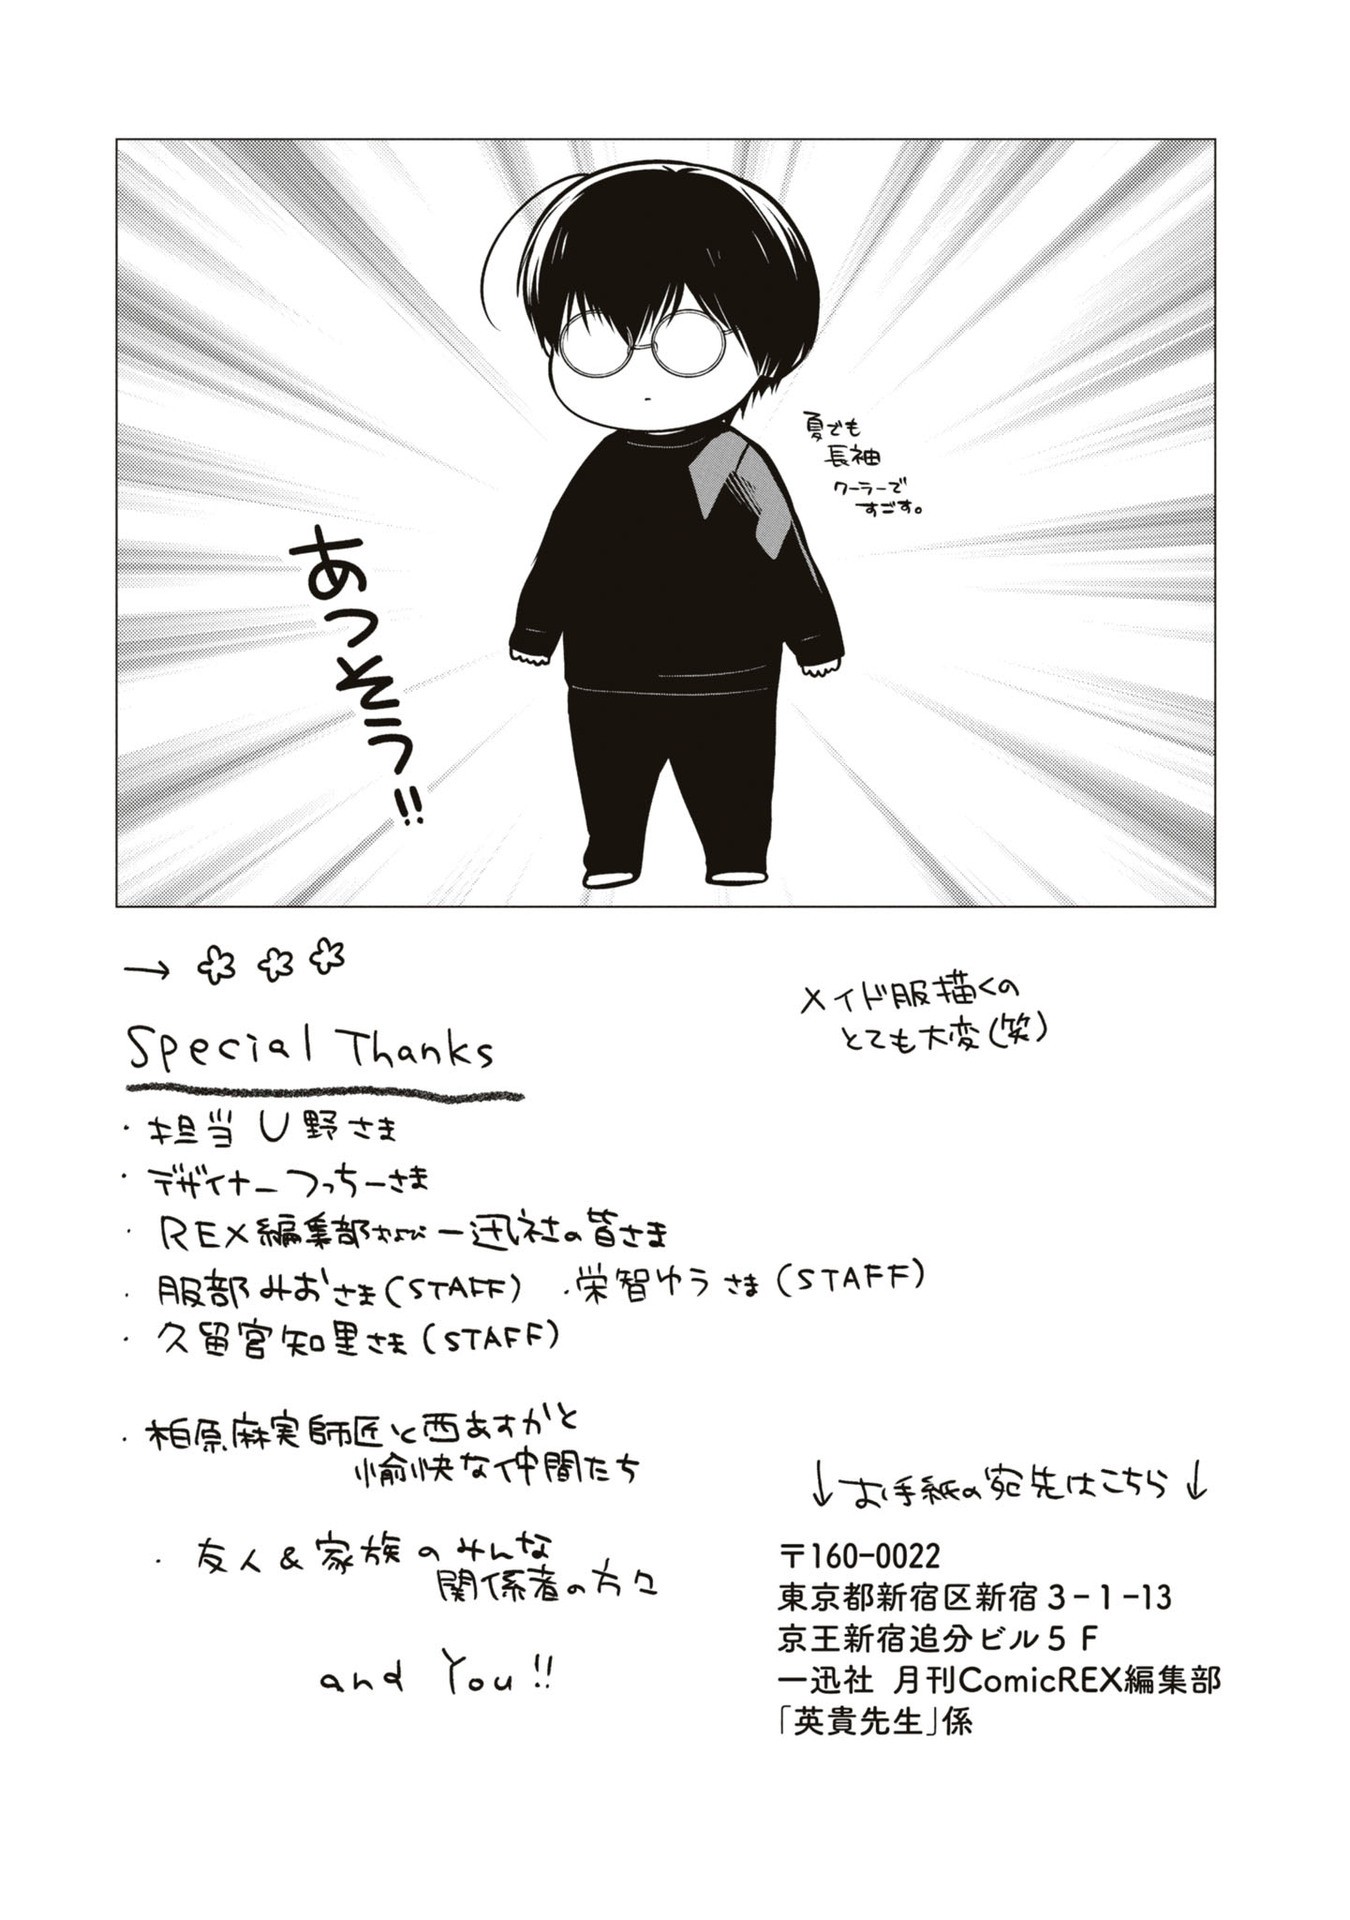 夏でも
長袖
クーラーで
すごす。
あつそう!!
→
メイド服描くの
とても大変(笑)
Special Thanks
・担当 U野さま
・デザイナー つっちーさま
・REX編集部および一迅社の皆さま
・服部みおさま(STAFF) ・栄智ゆうさま(STAFF)
・久留宮知里さま(STAFF)
・柏原麻実師匠と西あすかと
愉快な仲間たち
・友人&家族のみんな
関係者の方々
and You!!
↓お手紙の宛先はこちら↓
〒160-0022
東京都新宿区新宿3-1-13
京王新宿追分ビル5F
一迅社 月刊ComicREX編集部
「英貴先生」係